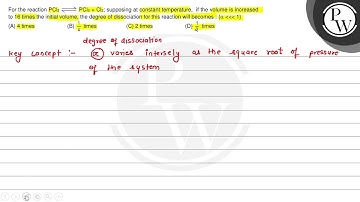 For the reaction PCl₅ ⇌ PCl₃ + Cl₂; supposing at constant temperature, if the volume is increased
to 16 times the initial volume, the degree of dissociation for this reaction will becomes : (α <<< 1)
(A) 4 times (B) 1/4 times (C) 2 times (D) 1/2 times
degree of dissociation
key concept :- α varies inversely as the square root of pressure
of the system